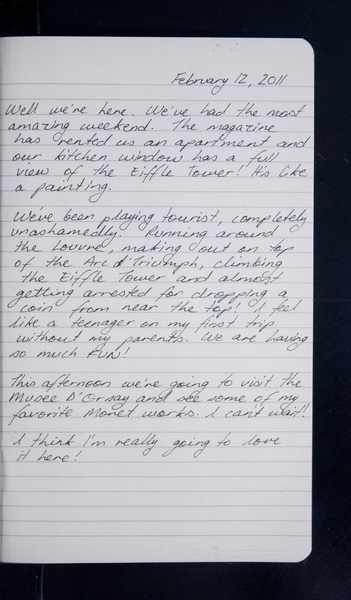 February 12, 2011
Well we're here. We've had the most
amazing weekend. The magazine
has rented us an apartment and
our kitchen window has a full
view of the Eiffle Tower! It's like
a painting.
We've been playing tourist, completely
unashamedly. Running around
the Louvre, making out on top
of the Arc d'Triumph, climbing
the Eiffle Tower and almost
getting arrested for dropping a
coin from near the top! I feel
like a teenager on my first trip
without my parents. We are having
so much FUN!
This afternoon we're going to visit the
Musee D'Orsay and see some of my
favorite Monet works. I can't wait!
I think I'm really going to love
it here!